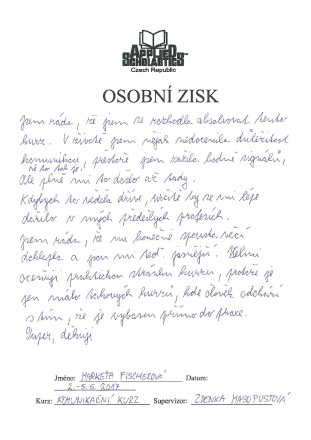 APPLIED
SCHOLASTICS
Czech Republic
OSOBNÍ ZISK
Jsem ráda, že jsem se rozhodla absolvovat tento
kurz. V životě jsem nějak nedocenila důležitost
komunikace, protože jsem hodně signálů,
že to tak je.
Ale plně mi to došlo až tady.
Kdybych to věděla dříve, určitě by se mi lépe
dařilo v mých předešlých profesích.
Jsem ráda, že mi konečně spousta věcí
došla a jsou mi teď jasnější. Velmi
oceňuji praktickou stránku kurzu, protože je
jen málo takových kurzů, kde člověk odchází
s tím, že je vybaven přímo do praxe.
Super, děkuji
Jméno: MARKÉTA FISCHEROVÁ Datum:
2.-5.5.2017
Kurz: KOMUNIKAČNÍ KURZ Supervizor: ZDENKA MASOPUSTOVÁ